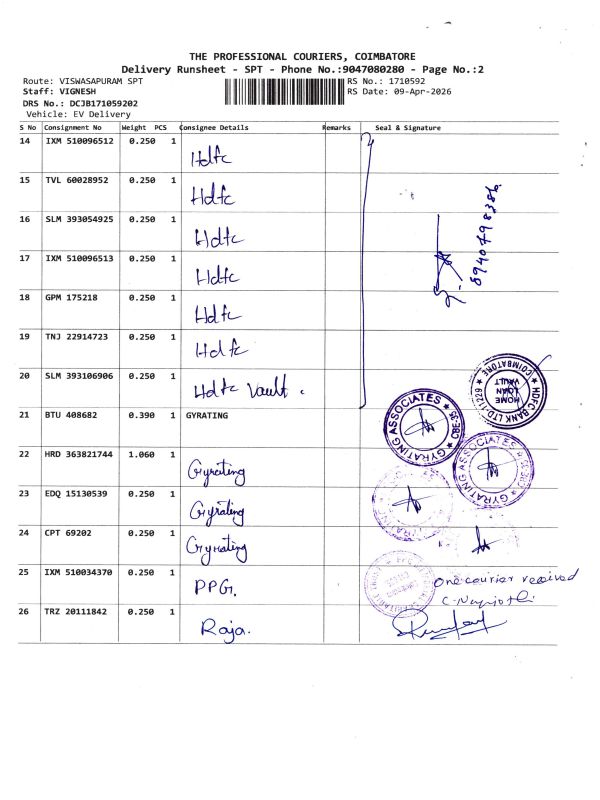 THE PROFESSIONAL COURIERS, COIMBATORE
Delivery Runsheet - SPT - Phone No.:9047080280 - Page No.:2
Route: VISWASAPURAM SPT RS No.: 1710592
Staff: VIGNESH RS Date: 09-Apr-2026
DRS No.: DCJB171059202
Vehicle: EV Delivery
S No Consignment No Weight PCS Consignee Details Remarks Seal & Signature
14 IXM 510096512 0.250 1 Hdfc
15 TVL 60028952 0.250 1 Hdfc
16 SLM 393054925 0.250 1 Hdfc
17 IXM 510096513 0.250 1 Hdfc
18 GPM 175218 0.250 1 Hdfc
19 TNJ 22914723 0.250 1 Hdfc
20 SLM 393106906 0.250 1 Hdfc Vault.
HDFC BANK LTD-11229 ★ COIMBATORE ★
HOME LOAN VAULT
21 BTU 408682 0.390 1 GYRATING
GYRATING ASSOCIATES ★ CBE-35 ★
22 HRD 363821744 1.060 1 Gyrating
GYRATING ASSOCIATES ★ CBE-35 ★
23 EDQ 15130539 0.250 1 Gyrating
24 CPT 69202 0.250 1 Gyrating
25 IXM 510034370 0.250 1 PPG.
One courier received
26 TRZ 20111842 0.250 1 Raja.